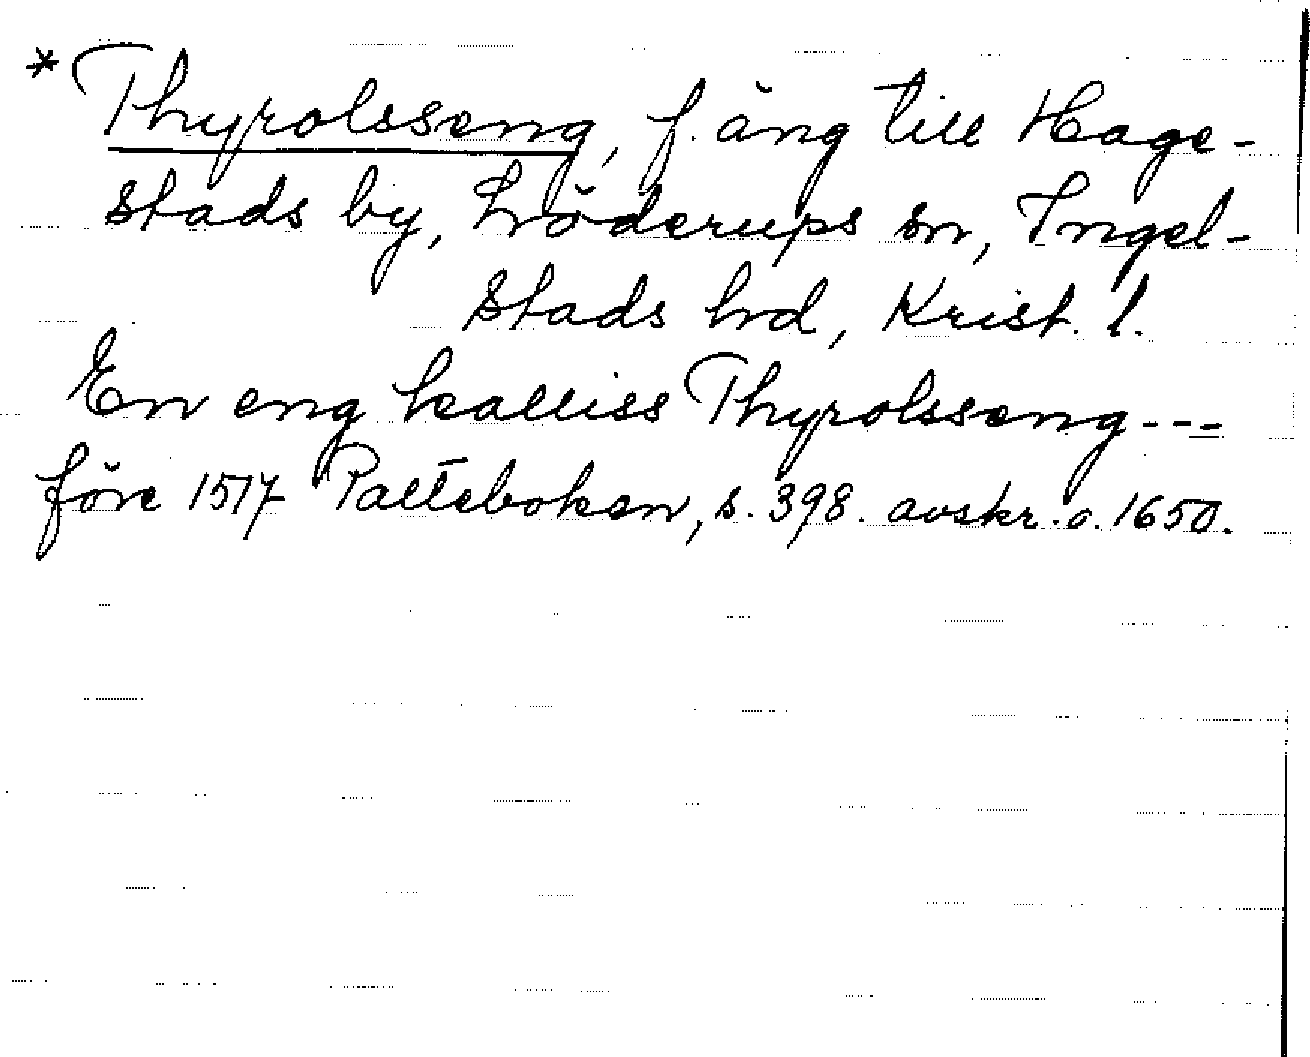 * Thyrolsseng, f. äng till Hage-
stads by, Löderups sn, Ingel-
stads hrd, Krist. l.
En eng kalliss Thyrolsseng---
före 1517 Palteboken, s. 398. avskr. o. 1650.